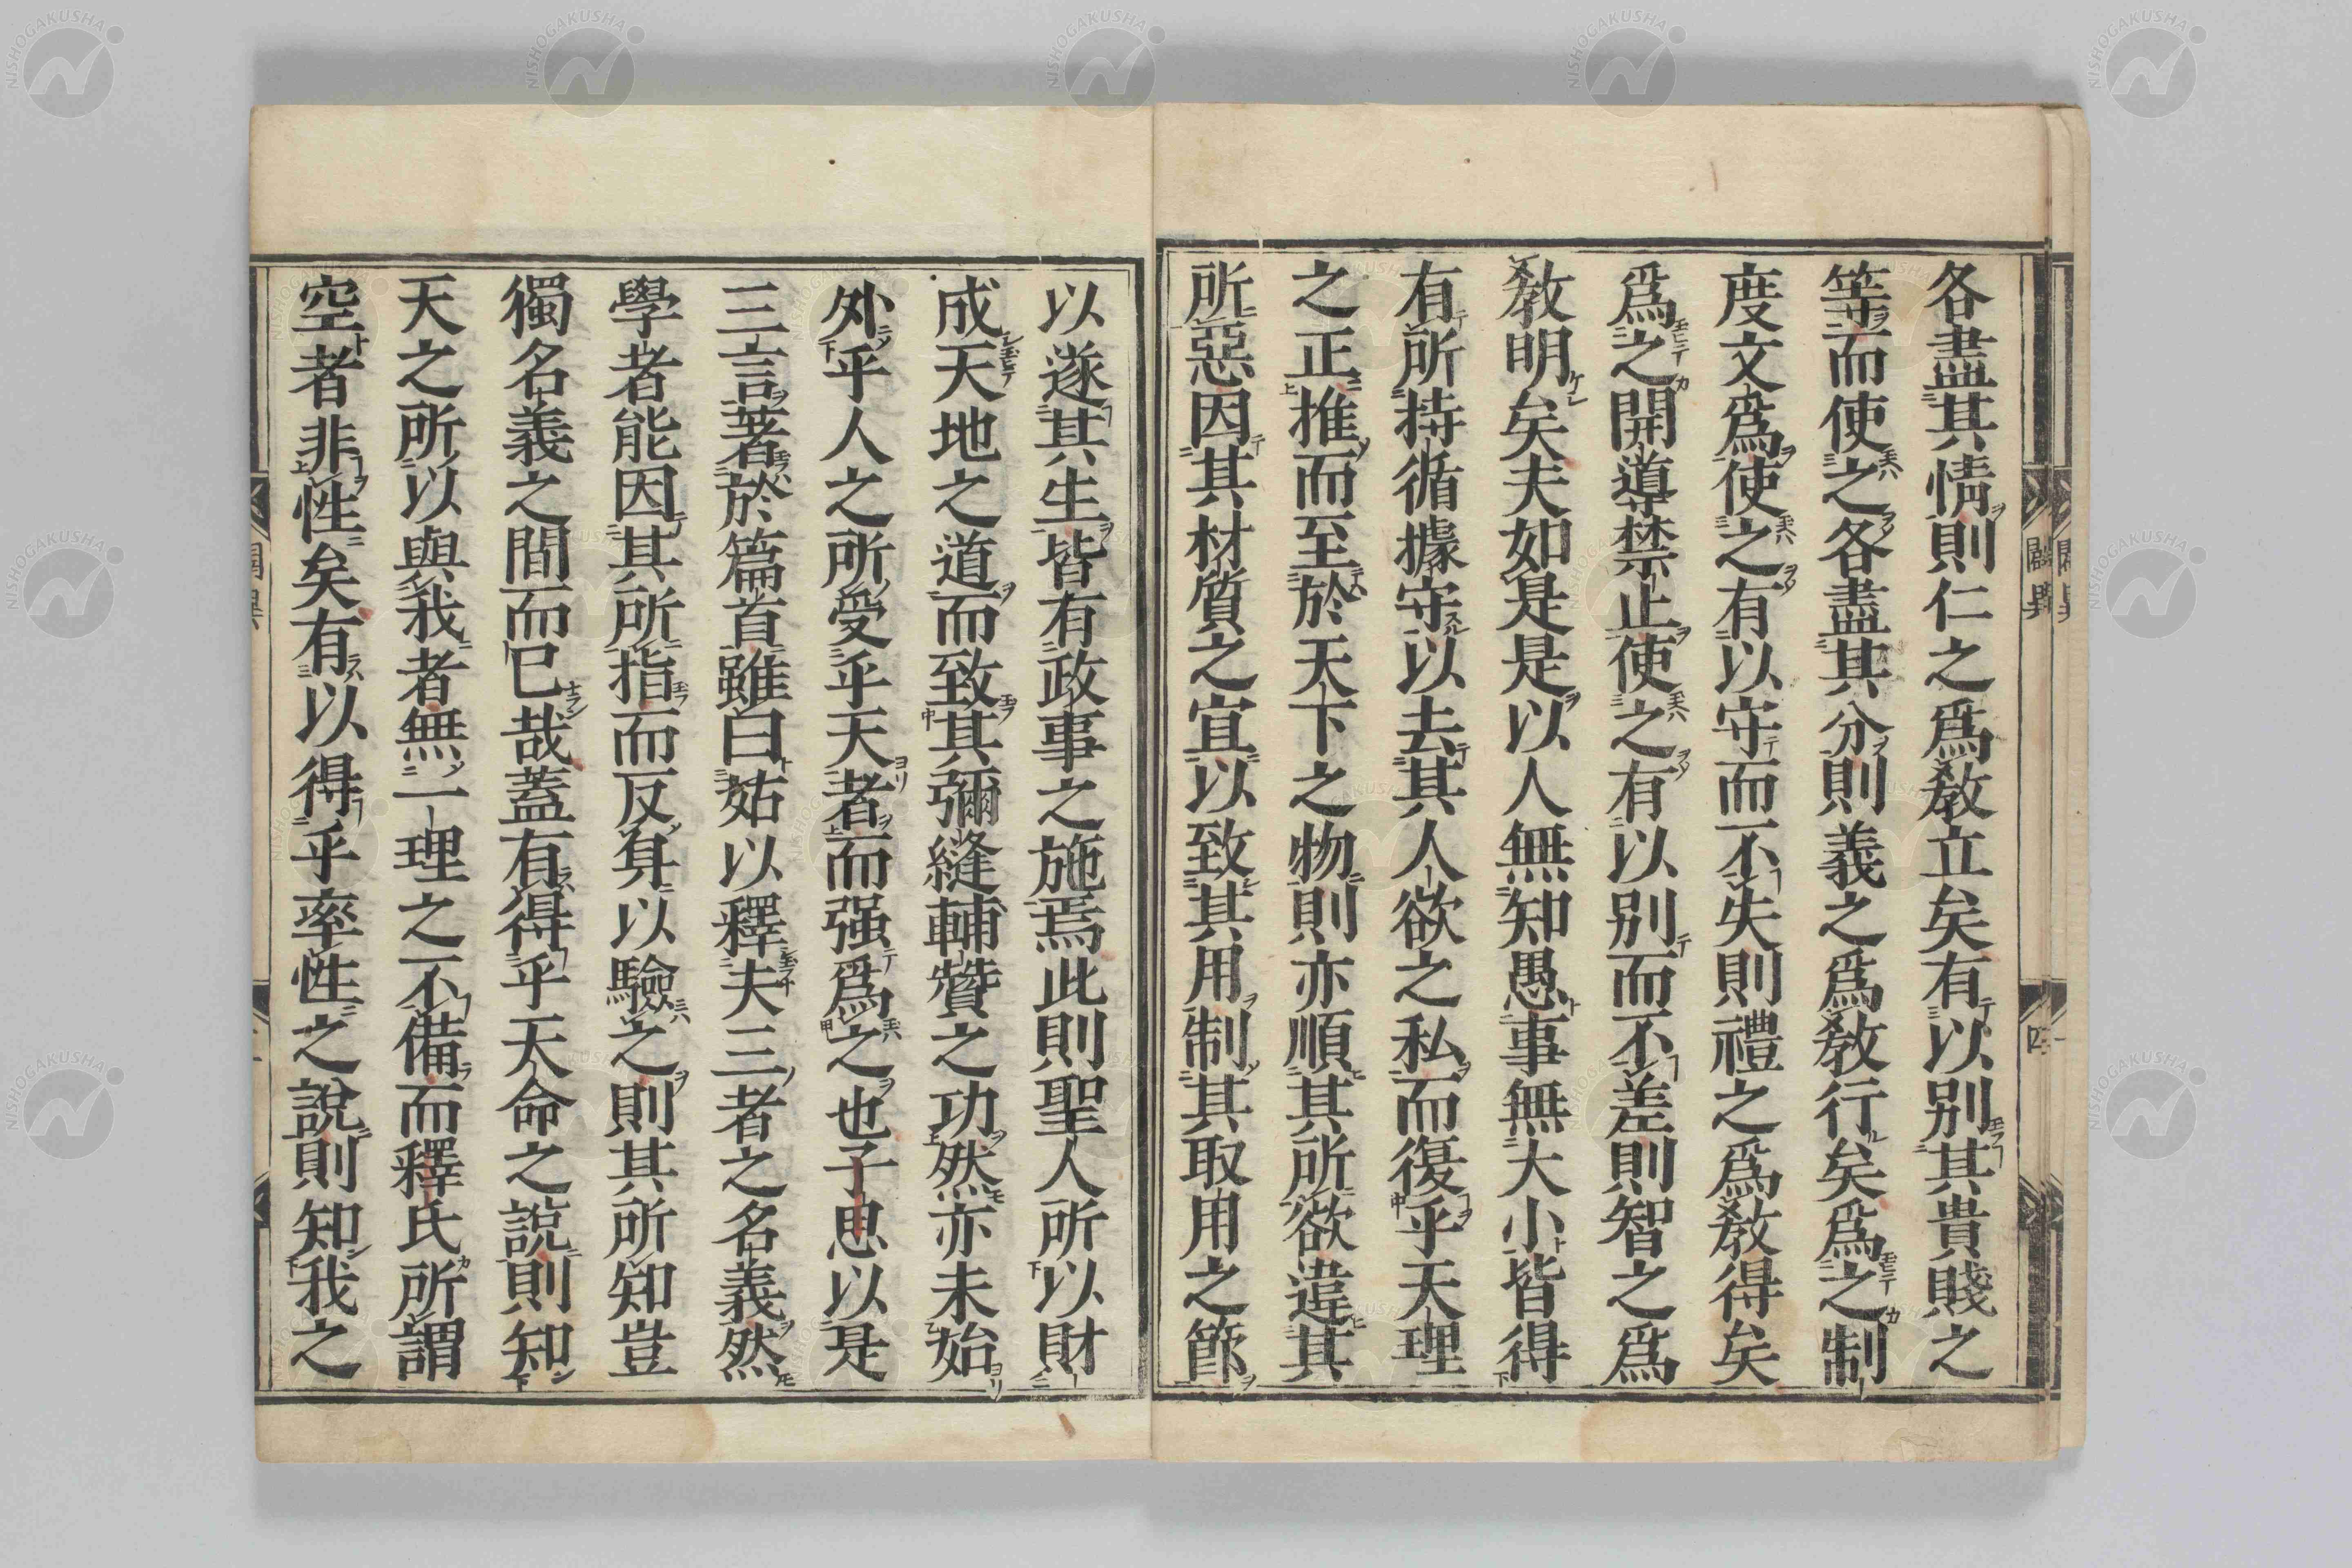 各盡其情則仁之爲敎立矣有以别其貴賤之
等而使之各盡其分則義之爲敎行矣爲之制
度文爲使之有以守而不失則禮之爲敎得矣
爲之開導禁止使之有以别而不差則智之爲
敎明矣夫如是是以人無知愚事無大小皆得
有所持循據守以去其人欲之私而復乎天理
之正推而至於天下之物則亦順其所欲違其
所惡因其材質之宜以致其用制其取用之節
以遂其生皆有政事之施焉此則聖人所以財
成天地之道而致其彌縫輔贊之功然亦未始
外乎人之所受乎天者而强爲之也子思以是
三言著於篇首雖曰姑以釋夫三者之名義然
學者能因其所指而反身以驗之則其所知豈
獨名義之間而已哉蓋有得乎天命之說則知
天之所以與我者無一理之不備而釋氏所謂
空者非性矣有以得乎率性之說則知我之
闢異
四
NISHOGAKUSHA